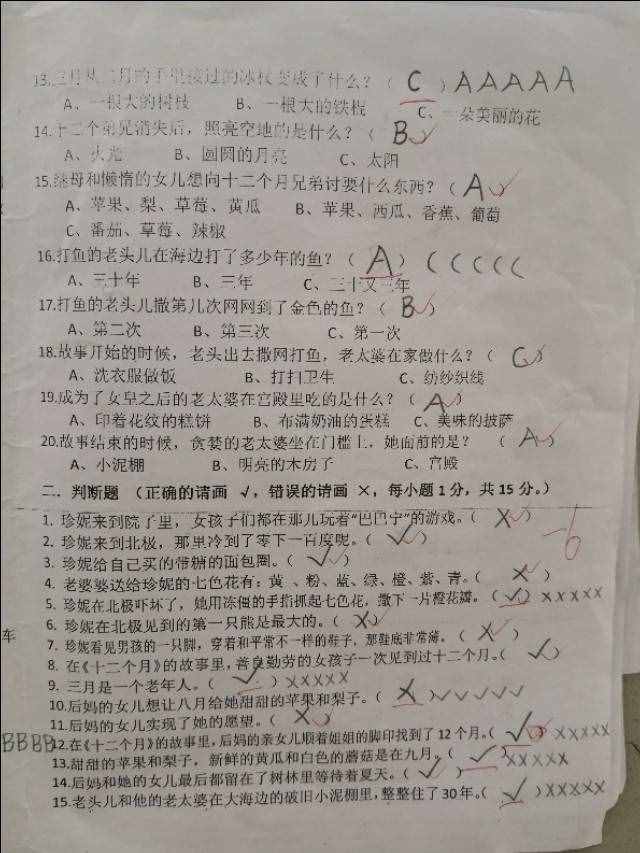 13.三月从二月的手里接过的冰杖变成了什么？（ C ）AAAAA
A、一根大的树枝 B、一根大的铁棍 C、一朵美丽的花
14.十二个弟兄消失后，照亮空地的是什么？（ B ）
A、火光 B、圆圆的月亮 C、太阳
15.继母和懒惰的女儿想向十二个月兄弟讨要什么东西？（ A ）
A、苹果、梨、草莓、黄瓜 B、苹果、西瓜、香蕉、葡萄
C、番茄、草莓、辣椒
16.打鱼的老头儿在海边打了多少年的鱼？（ A ）CCCCC
A、三十年 B、三年 C、三十又三年
17.打鱼的老头儿撒第几次网网到了金色的鱼？（ B ）
A、第二次 B、第三次 C、第一次
18.故事开始的时候，老头出去撒网打鱼，老太婆在家做什么？（ C ）
A、洗衣服做饭 B、打扫卫生 C、纺纱织线
19.成为了女皇之后的老太婆在宫殿里吃的是什么？（ A ）
A、印着花纹的糕饼 B、布满奶油的蛋糕 C、美味的披萨
20.故事结束的时候，贪婪的老太婆坐在门槛上，她面前的是？（ A ）
A、小泥棚 B、明亮的木房子 C、宫殿
二．判断题 （正确的请画 √，错误的请画 ×，每小题 1 分，共 15 分。）
1. 珍妮来到院子里，女孩子们都在那儿玩着“巴巴宁”的游戏。（ × ）
-6
2. 珍妮来到北极，那里冷到了零下一百度呢。（ √ ）
3. 珍妮给自己买的带糖的面包圈。（ √ ）
4. 老婆婆送给珍妮的七色花有：黄、粉、蓝、绿、橙、紫、青。（ × ）
5. 珍妮在北极吓坏了，她用冻僵的手指抓起七色花，撒下一片橙花瓣。（ √ ）×××××
6. 珍妮在北极见到的第一只熊是最大的。（ × ）
7. 珍妮看见男孩的一只脚，穿着和平常不一样的鞋子，那鞋底非常薄。（ × ）
8. 在《十二个月》的故事里，善良勤劳的女孩子一次见到过十二个月。（ √ ）
9. 三月是一个老年人。（ √ ）×××××
10.后妈的女儿想让八月给她甜甜的苹果和梨子。（ × ）√√√√√
11.后妈的女儿实现了她的愿望。（ × ）
BBBB12.在《十二个月》的故事里，后妈的亲女儿顺着姐姐的脚印找到了 12 个月。（ √ ）×××××
13.甜甜的苹果和梨子，新鲜的黄瓜和白色的蘑菇是在九月。（ √ ）×××××
14.后妈和她的女儿最后都留在了树林里等待着夏天。（ √ ）
15.老头儿和他的老太婆在大海边的破旧小泥棚里，整整住了 30 年。（ √ ）×××××
车